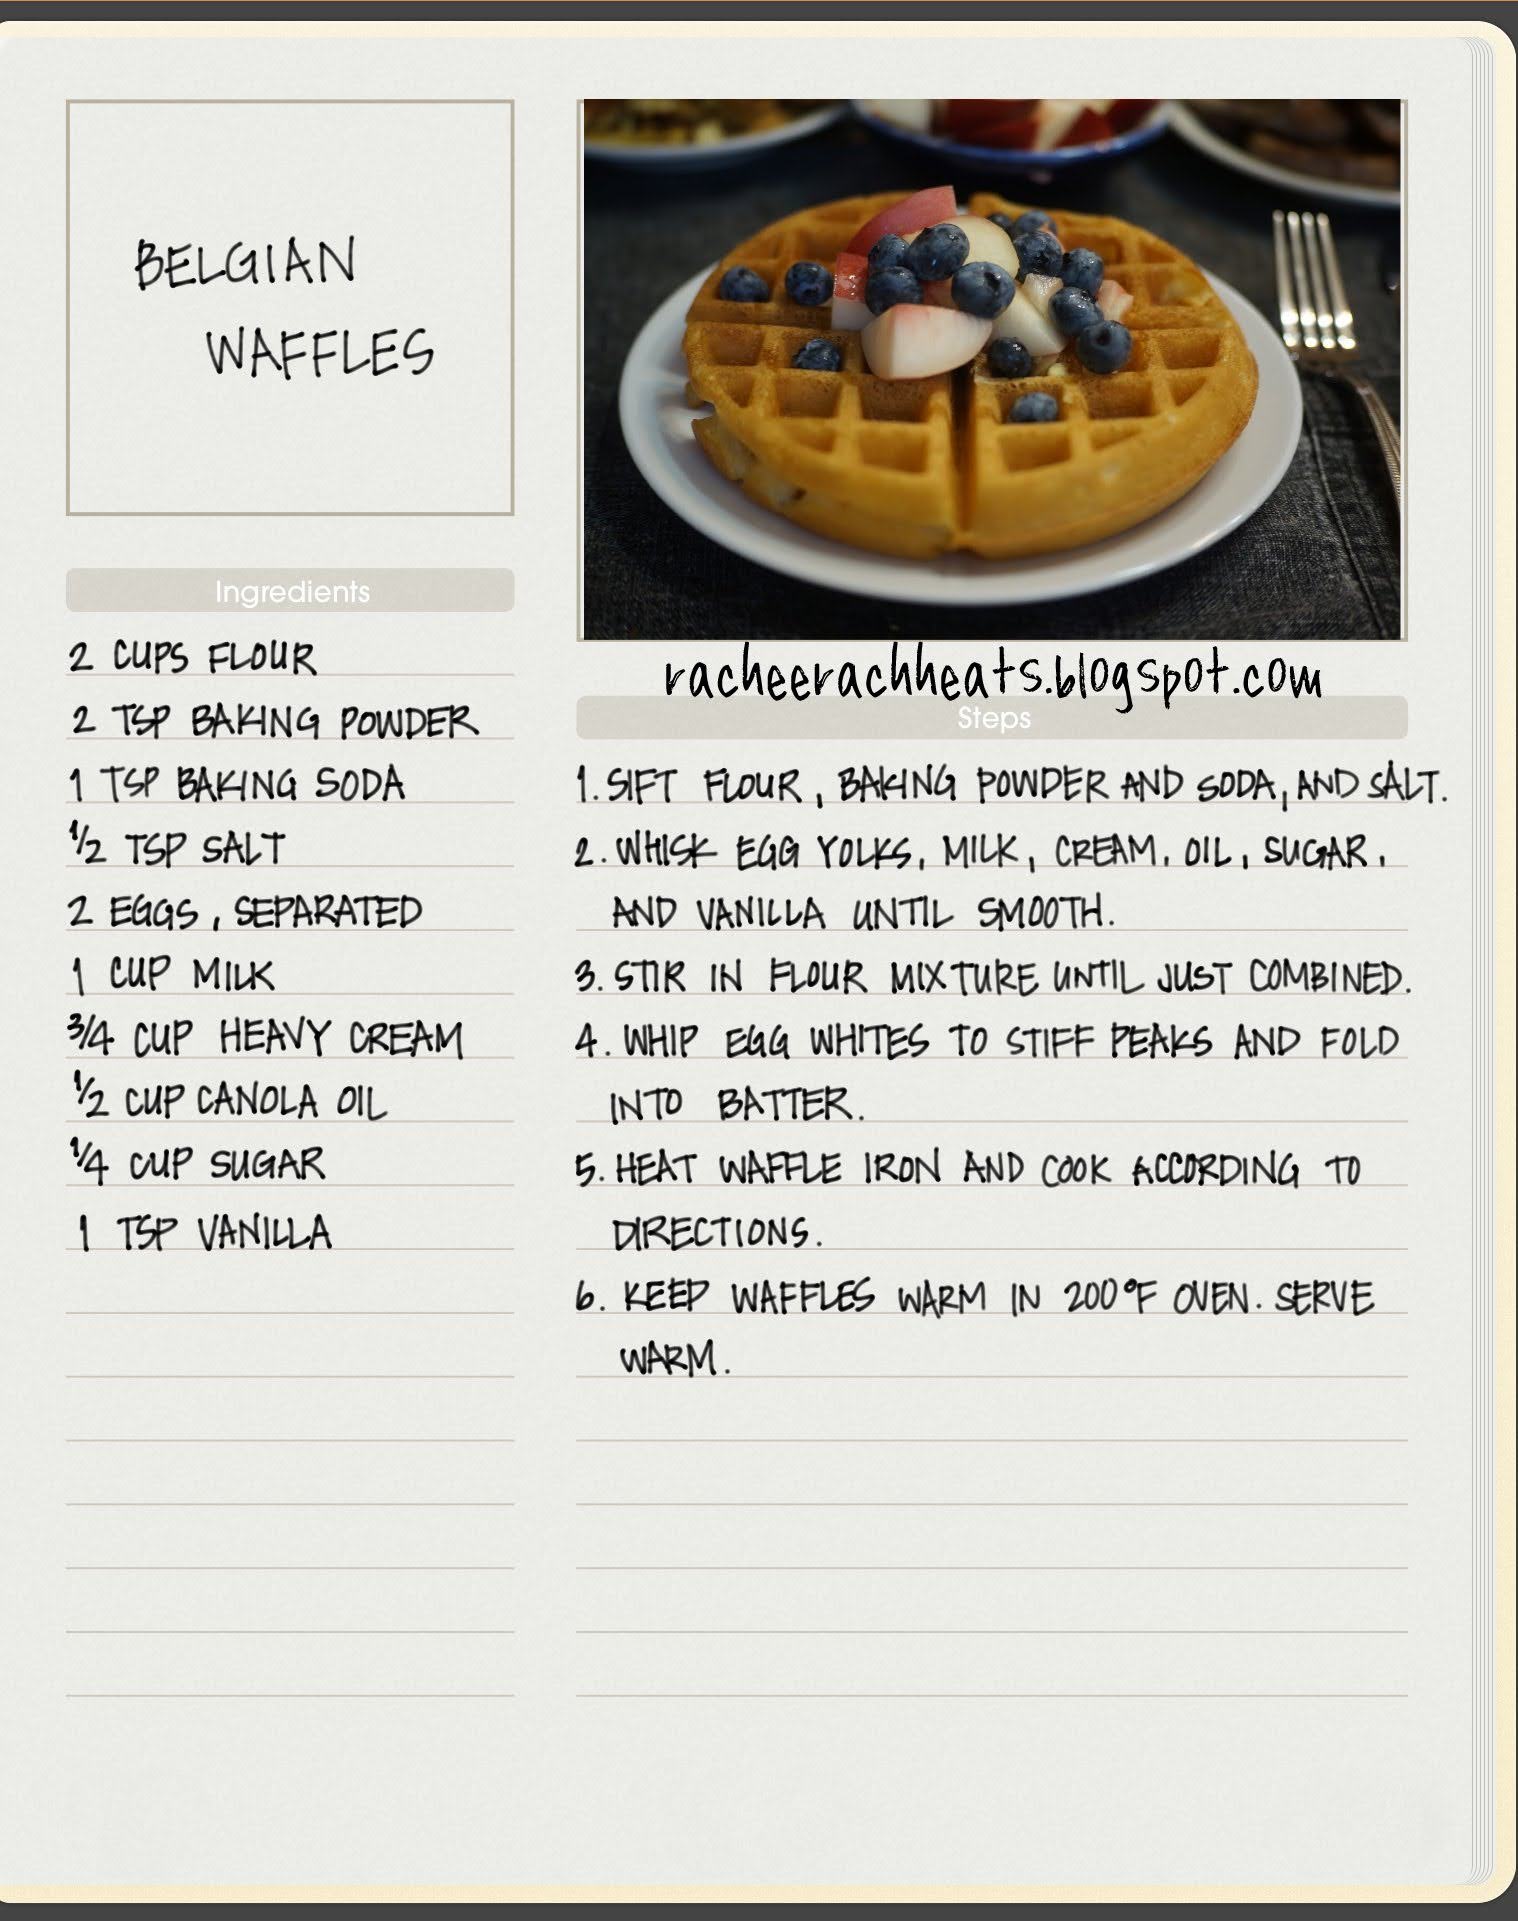 BELGIAN
WAFFLES
Ingredients
2 CUPS FLOUR
2 TSP BAKING POWDER
1 TSP BAKING SODA
1/2 TSP SALT
2 EGGS, SEPARATED
1 CUP MILK
3/4 CUP HEAVY CREAM
1/2 CUP CANOLA OIL
1/4 CUP SUGAR
1 TSP VANILLA
racheerachheats.blogspot.com
Steps
1. SIFT FLOUR, BAKING POWDER AND SODA, AND SALT.
2. WHISK EGG YOLKS, MILK, CREAM, OIL, SUGAR,
AND VANILLA UNTIL SMOOTH.
3. STIR IN FLOUR MIXTURE UNTIL JUST COMBINED.
4. WHIP EGG WHITES TO STIFF PEAKS AND FOLD
INTO BATTER.
5. HEAT WAFFLE IRON AND COOK ACCORDING TO
DIRECTIONS.
6. KEEP WAFFLES WARM IN 200°F OVEN. SERVE
WARM.